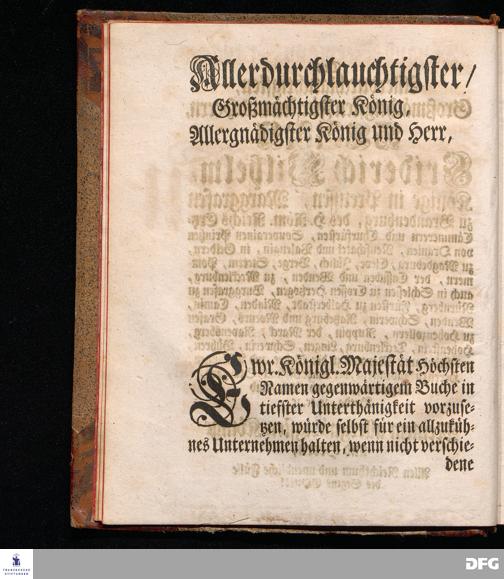 Allerdurchlauchtigster/
Großmächtigster König,
Allergnädigster König und Herr,
Ewr. Königl. Majestät Höchsten
Namen gegenwärtigem Buche in
tiefster Unterthänigkeit vorzuse-
tzen, würde selbst für ein allzuküh-
nes Unternehmen halten, wenn nicht verschie-
dene
FRANCKESCHE
STIFTUNGEN
DFG